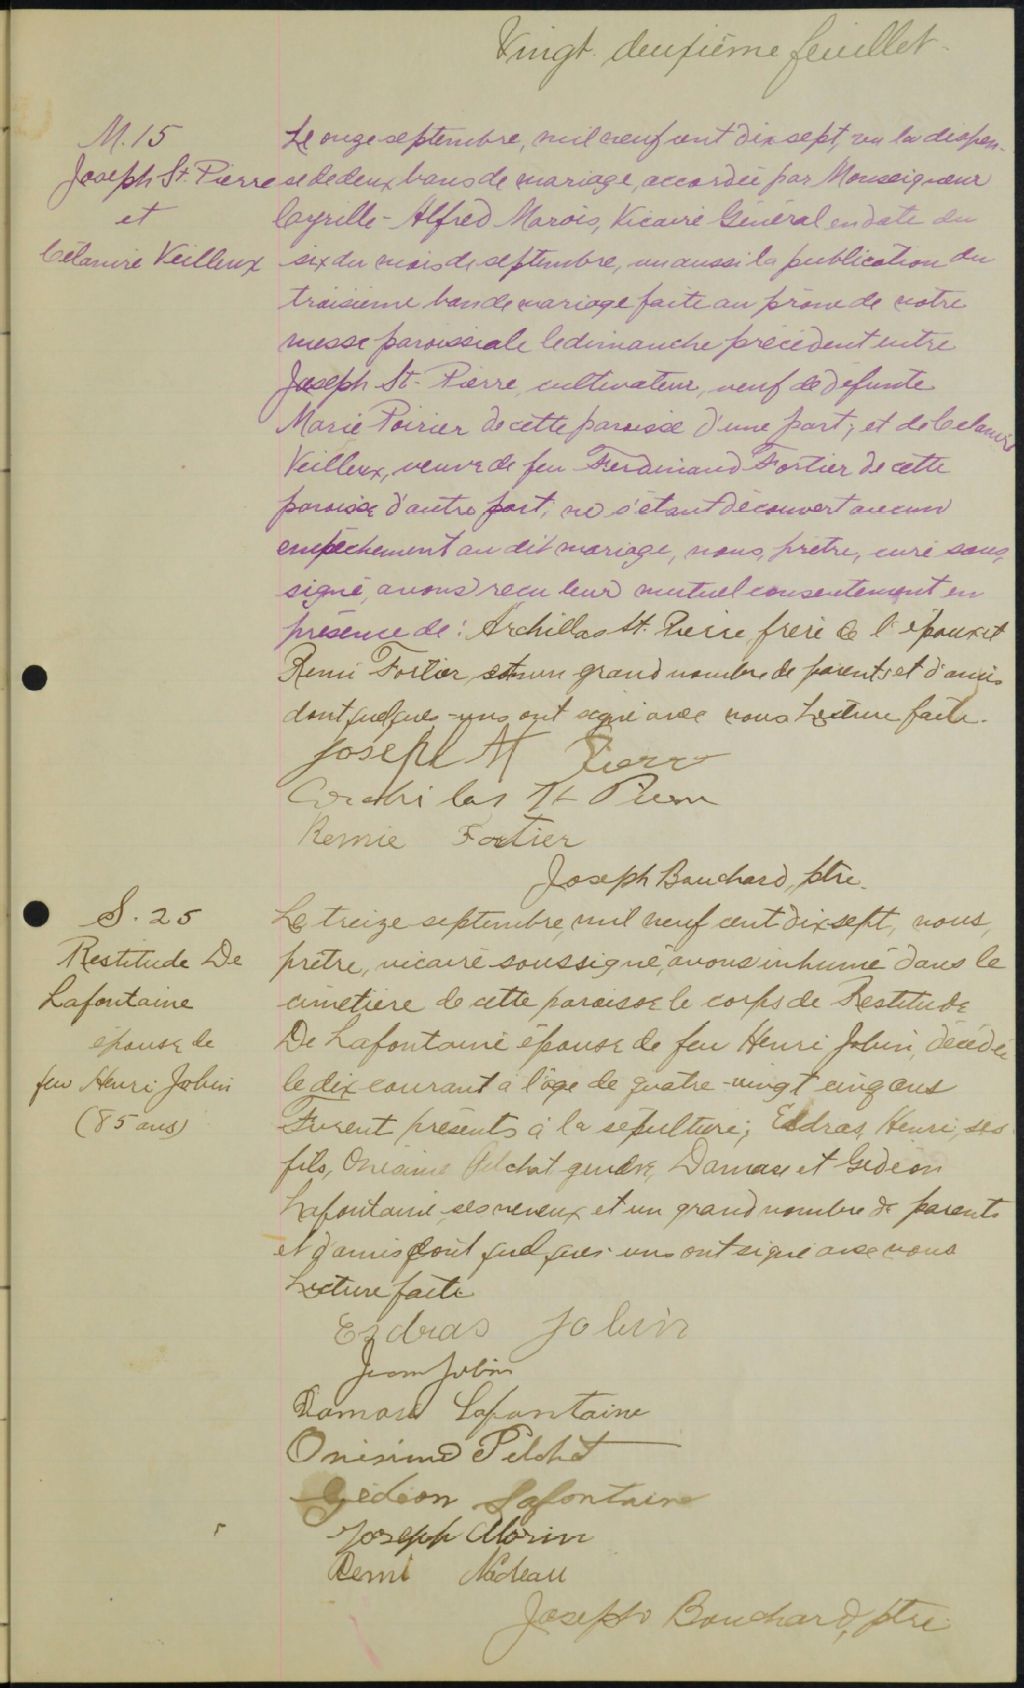 Vingt-deuxième feuillet.
M. 15
Joseph St. Pierre
et
Célanire Veilleux
Le onze septembre, mil neuf cent dix sept, vu la dispen-
se de deux bans de mariage, accordée par Monseigneur
Cyrille-Alfred Marois, Vicaire Général en date du
six du mois de septembre, vu aussi la publication du
troisième ban de mariage faite au prône de notre
messe paroissiale le dimanche précédent entre
Joseph St-Pierre, cultivateur, veuf de défunte
Marie Poirier de cette paroisse d'une part; et de Célanire
Veilleux, veuve de feu Ferdinand Fortier de cette
paroisse d'autre part; ne s'étant découvert aucun
empêchement au dit mariage, nous, prêtre, curé sous,
signé, avons reçu leur mutuel consentement en
présence de: Archillas St. Pierre frère de l'époux et
Remi Fortier, et un grand nombre de parents et d'amis
dont quelques-uns ont signé avec nous Lecture faite.
Joseph St Pierre
St Pierre
Remie Fortier
Joseph Bouchard, ptre.
S. 25
Restitude De
Lafontaine
épouse de
feu Henri Jobin
(85 ans)
Le treize septembre, mil neuf cent dix-sept, nous,
prêtre, vicaire soussigné, avons inhumé dans le
cimetière de cette paroisse le corps de Restitude
De Lafontaine épouse de feu Henri Jobin, décédée
le dix courant à l'âge de quatre-vingt cinq ans
Furent présents à la sépulture; Esdras, Henri, ses
fils, Onésime Pelchat gendre, Damase et Gédéon
Lafontaine, ses neveux et un grand nombre de parents
et d'amis dont quelques-uns ont signé avec nous
Lecture faite
Esdras Jobin
Jobin
Damase Lafontaine
Onésime Pelchat
Gédéon Lafontaine
Joseph Morin
Remi Nadeau
Joseph Bouchard, ptre